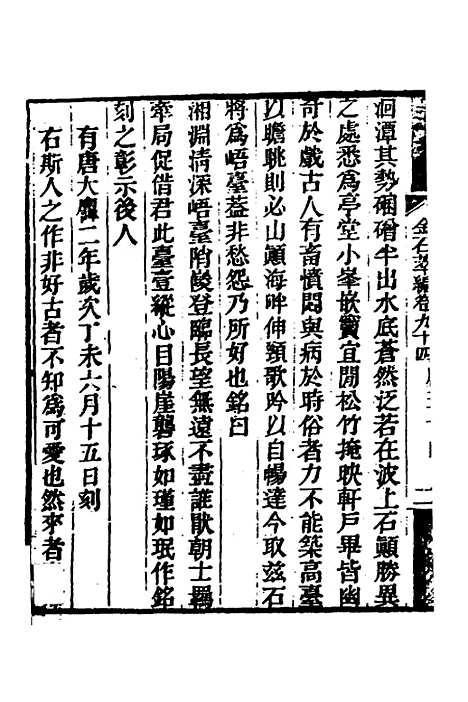 金石萃編卷九十四
洄潭其勢硱磳半出水底蒼然泛若在波上石顚勝異
之處悉爲亭堂小峯嵌竇宜閒松竹掩映軒戶畢皆幽
奇於戲古人有畜憤悶與病於時俗者力不能築高臺
以瞻眺則必山顚海畔伸頸歌吟以自暢達今取茲石
將爲峿臺葢非愁怨乃所好也銘曰
湘淵清深峿臺陗峻登臨長望無遠不盡誰猒朝士羈
牽局促借君此臺壹縱心目陽崖礱琢如瑾如珉作銘
刻之彰示後人
有唐大曆二年歲次丁未六月十五日刻
右斯人之作非好古者不知爲可愛也然來者